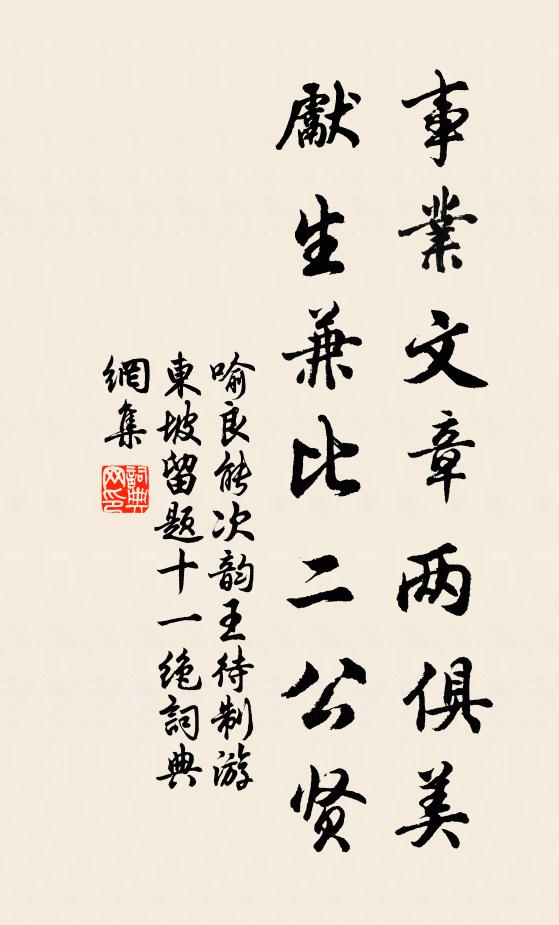 事業文章两俱美
獻生兼比二公贤
喻良能次韵王待制游
東坡留题十一绝詞典
網集
詞典
网印